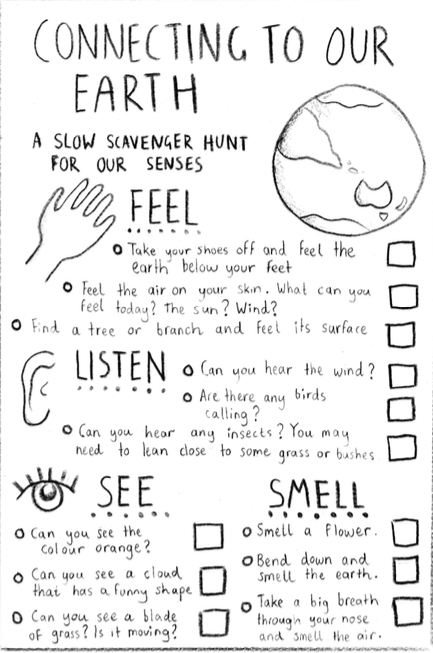 CONNECTING TO OUR
EARTH
A SLOW SCAVENGER HUNT
FOR OUR SENSES
FEEL
Take your shoes off and feel the
earth below your feet
Feel the air on your skin. What can you
feel today? The sun? Wind?
Find a tree or branch and feel its surface
LISTEN
Can you hear the wind?
Are there any birds
calling?
Can you hear any insects? You may
need to lean close to some grass or bushes
SEE
Can you see the
colour orange?
Can you see a cloud
that has a funny shape
Can you see a blade
of grass? Is it moving?
SMELL
Smell a flower.
Bend down and
smell the earth.
Take a big breath
through your nose
and smell the air.